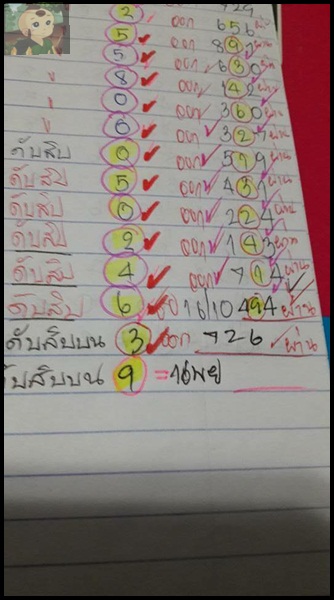 2 729
5 ออก 656 ผ่าน
5 ออก 897 ผ่าน
" 8 ออก 630 ผ่าน
" 0 ออก 360 ผ่าน
" 6 ออก 327 ผ่าน
ดับสิบ 0 ออก 579 ผ่าน
ดับสิบ 5 ออก 431 ผ่าน
ดับสิบ 0 ออก 224 ผ่าน
ดับสิบ 2 ออก 143 ผ่าน
ดับสิบ 4 ออก 714 ผ่าน
ดับสิบ 6 16/10 494 ผ่าน
ดับสิบบน 3 ออก 726 ผ่าน
ดับสิบบน 9 = 16พย